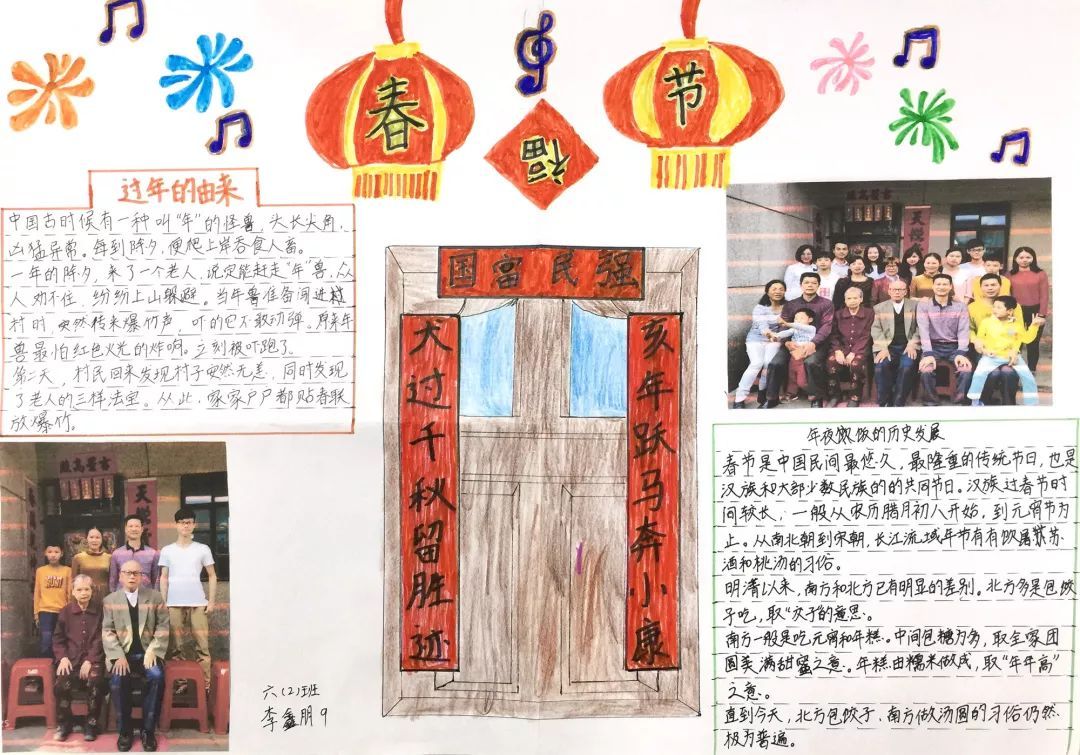 春
节
福
过年的由来
中国古时候有一种叫“年”的怪兽,头长尖角,
凶猛异常。每到除夕,便爬上岸吞食人畜。
一年的除夕,来了一个老人,说定能赶走“年”兽,众
人劝不住,纷纷上山躲避。当年兽准备闯进
村时,突然传来爆竹声,吓的它不敢动弹。原来年
兽最怕红色火光的炸响。立刻被吓跑了。
第二天,村民回来发现村子安然无恙,同时发现
了老人的三样法宝。从此,家家户户都贴春联
放爆竹。
国富民强
犬过千秋留脏迹
亥年跃马奔小康
照高星吉
照高星吉
六(2)班
李鑫朋 9
年夜饭的历史发展
春节是中国民间最悠久,最隆重的传统节日,也是
汉族和大部少数民族的的共同节日。汉族过春节时
间较长,一般从农历腊月初八开始,到元宵节为
止。从南北朝到宋朝,长江流域年节有有饮屠苏
酒和桃汤的习俗。
明清以来,南方和北方已有明显的差别。北方多是包饺
子吃,取“交子的意思。
南方一般是吃元宵和年糕。中间包糖为多,取全家团
圆美满甜蜜之意。年糕由糯米做成,取“年年高”
之意。
直到今天,北方包饺子,南方做汤圆的习俗仍然
极为普遍。